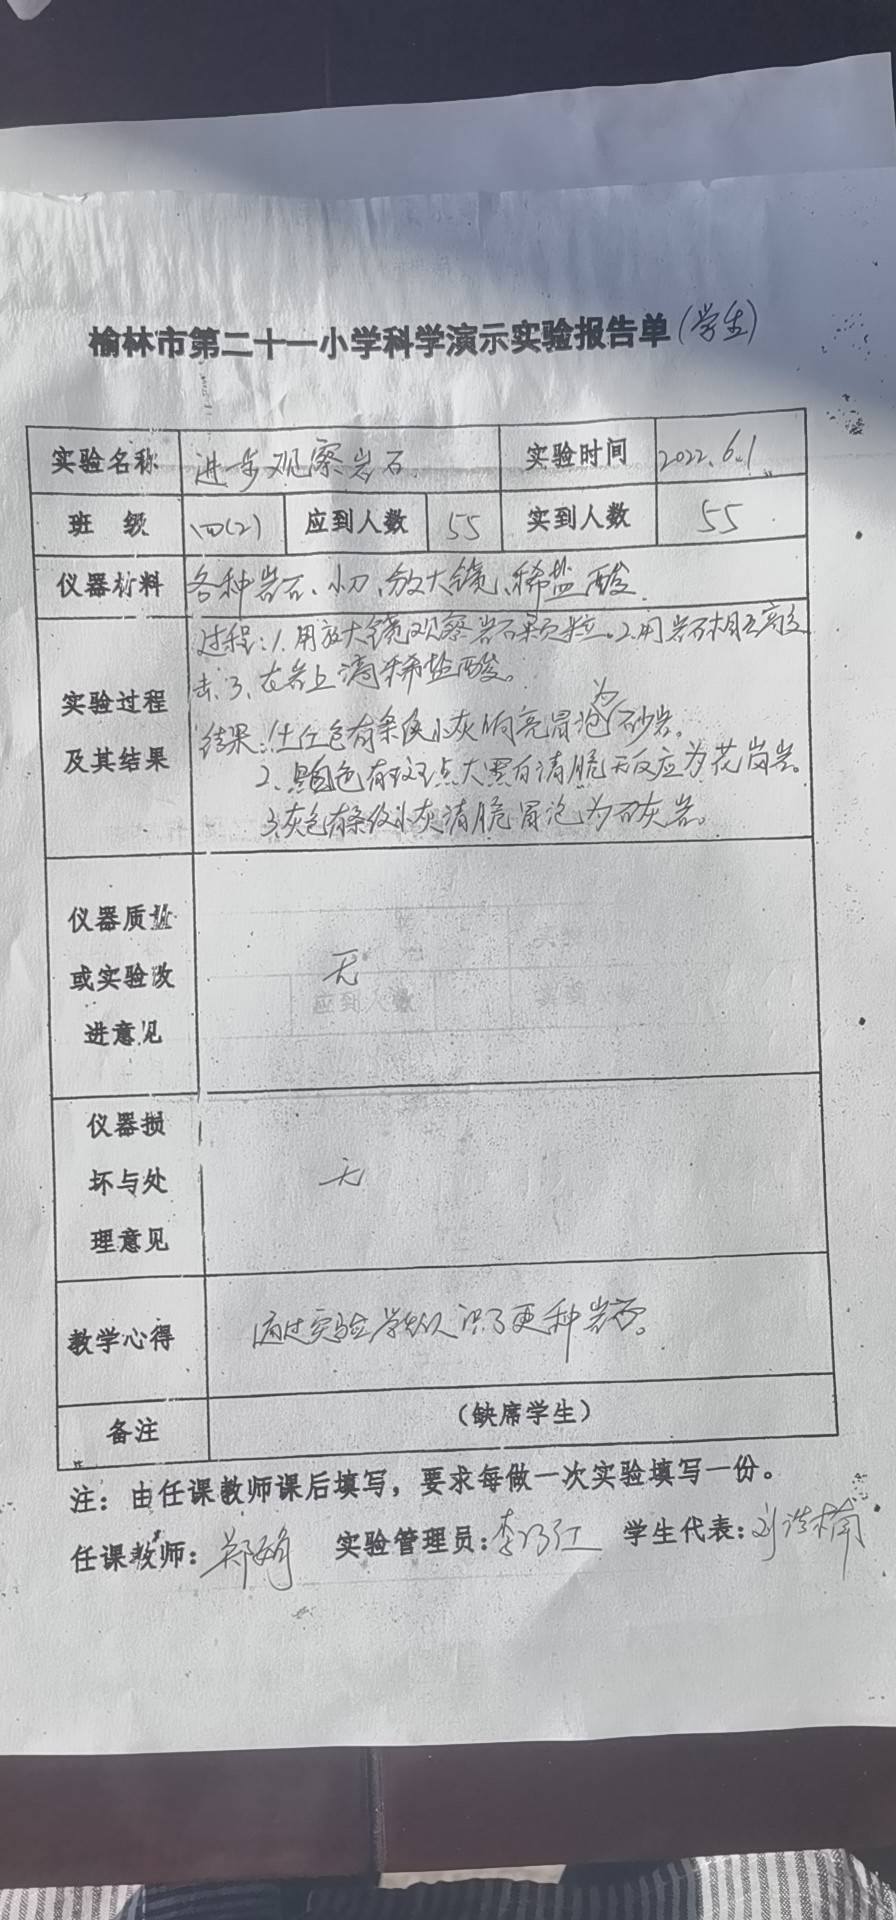 榆林市第二十一小学科学演示实验报告单(学生)
实验名称 进步观察岩石 实验时间 2022.6.1
班级 四(2) 应到人数 55 实到人数 55
仪器材料 各种岩石、小刀、放大镜、稀盐酸
过程:1.用放大镜观察岩石颗粒。2.用岩石相互敲
击、3、在岩上滴稀盐酸。
实验过程
及其结果
结果:1.土红色有条纹小灰响亮冒泡为砂岩。
2、黑白色有斑点大黑白清脆无反应为花岗岩。
3.灰色有条纹小灰清脆冒泡为石灰岩。
仪器质量
或实验改
进意见
无
仪器损
坏与处
理意见
无
教学心得 通过实验学生认识了更种岩石。
备注 (缺席学生)
注:由任课教师课后填写,要求每做一次实验填写一份。
任课教师: 实验管理员: 学生代表: